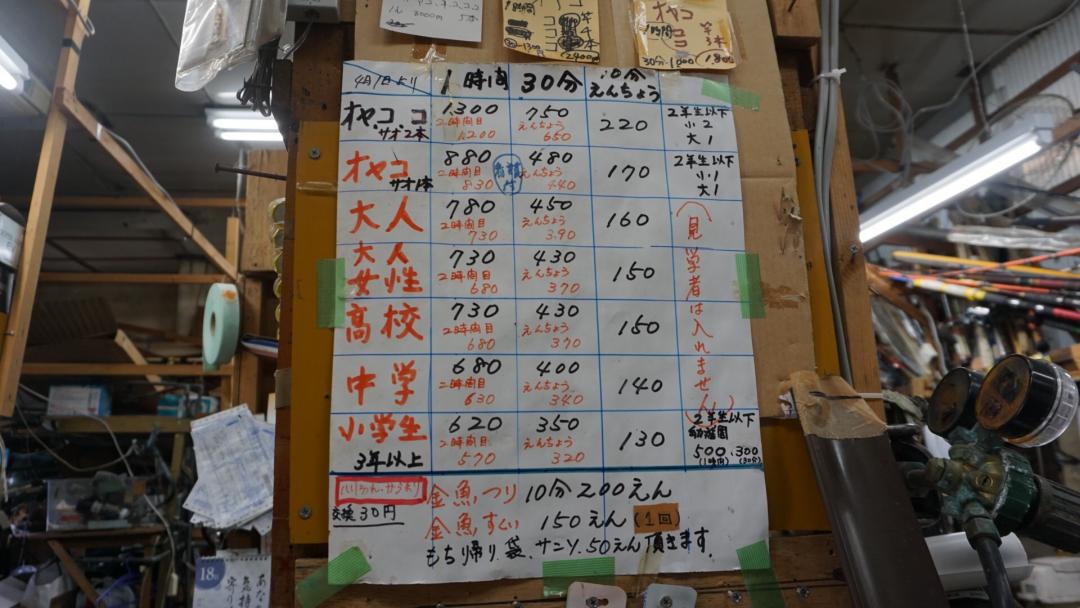 8000円 5本
1時間
(2400円)
オヤコ
1時間
30分 1000
4月1日より 1時間 30分 10分えんちょう
オヤ.コ.コ サオ2本 1300 2時間目 1200 750 えんちょう 650 220 2年生以下 小2 大1
オヤコ サオ1本 880 2時間目 830 480 えんちょう 440 170 2年生以下 小1 大1
大人 780 2時間目 730 450 えんちょう 390 160
大人女性 730 2時間目 680 430 えんちょう 370 150
高校 730 2時間目 680 430 えんちょう 370 150
中学 680 2時間目 630 400 えんちょう 340 140
小学生 3年以上 620 2時間目 570 350 えんちょう 320 130
(見学者は入れません)
(2年生以下 幼稚園
500.300
(1時間) (30分)
交換30円
金魚つり 10分200えん
金魚すくい 150えん (1回)
もち帰り袋.サンソ.50えん頂きます.
18日